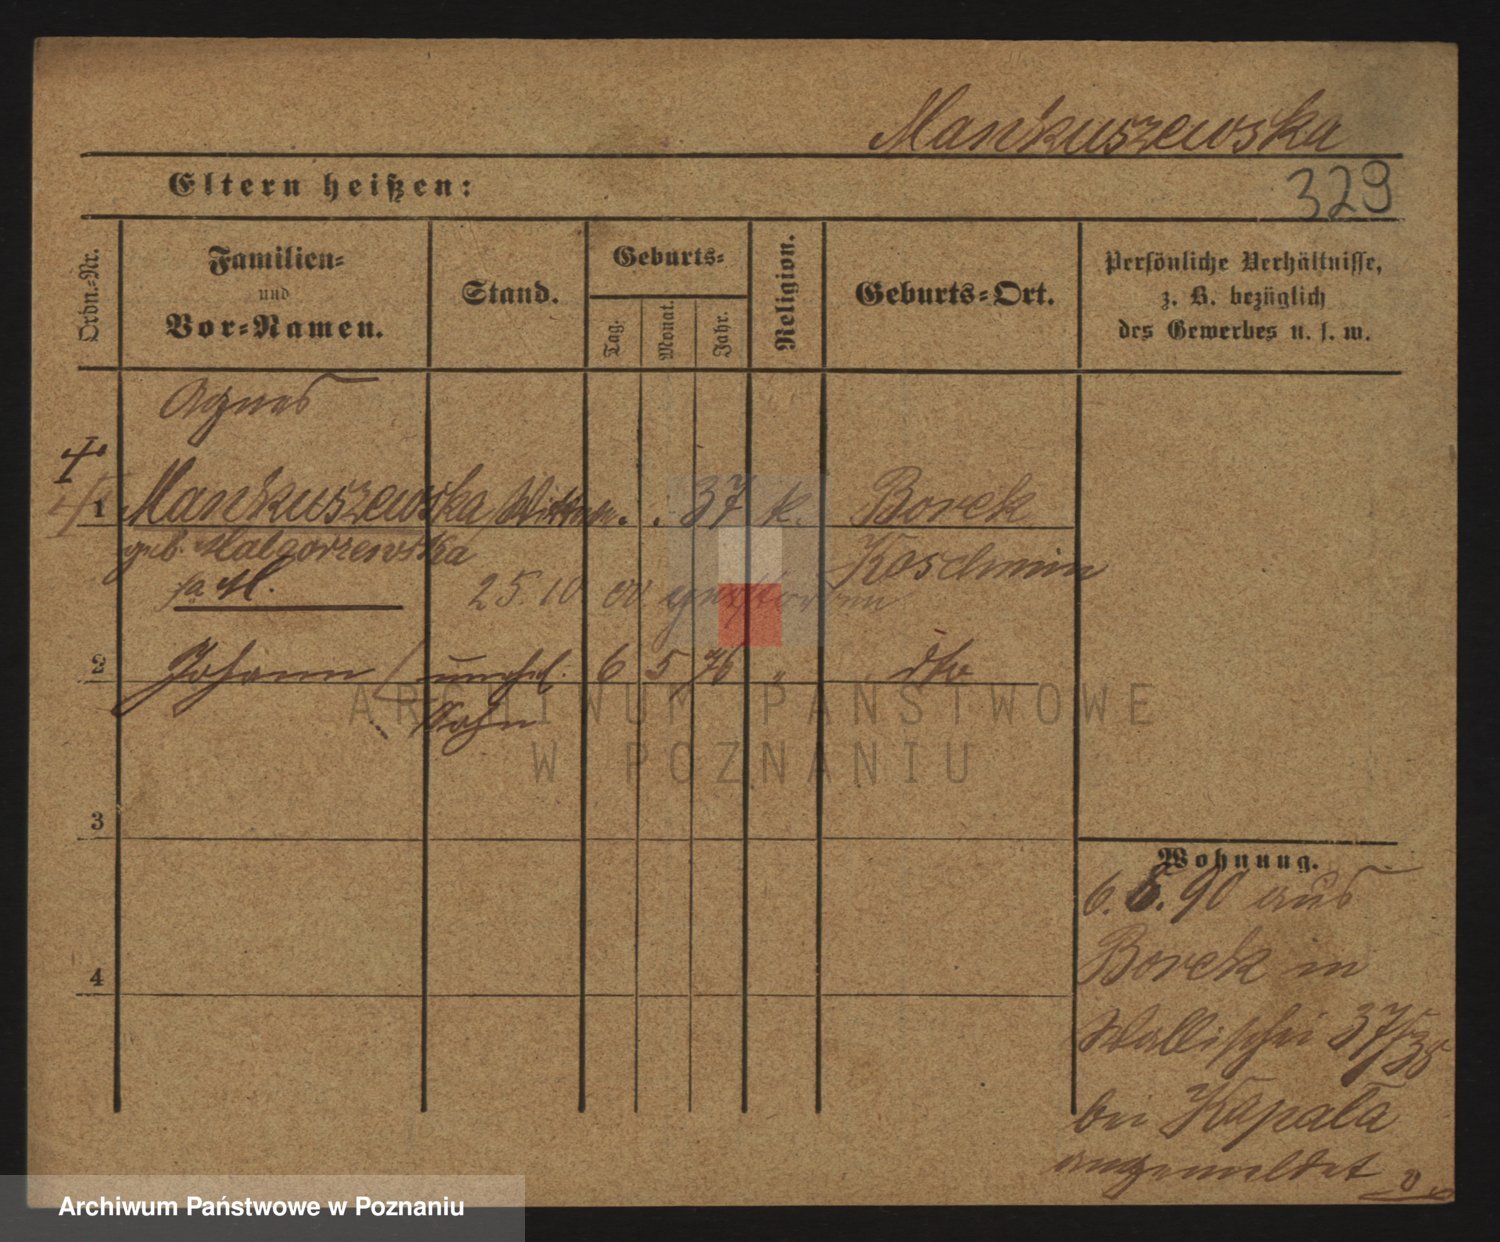 Mańkuszewska
Eltern heißen:
329
Ordn.-Nr.
Familien-
und
Vor-Namen.
Stand.
Geburts-
Tag.
Monat.
Jahr.
Religion.
Geburts-Ort.
Persönliche Verhältnisse,
z. B. bezüglich
des Gewerbes u. s. w.
Agnes
1 Mańkuszewska Wittwe . . 37 k. Borek
geb. Malgorzewska Koschmin
25.10 00 gestorben
2 Johann unehel. 6 5 76 " dto
Sohn
3
4
Wohnung.
6. 6. 90 aus
Borek in
Wallischei 37/38
bei Kapala
angemeldet
ARCHIWUM PAŃSTWOWE
W POZNANIU
Archiwum Państwowe w Poznaniu